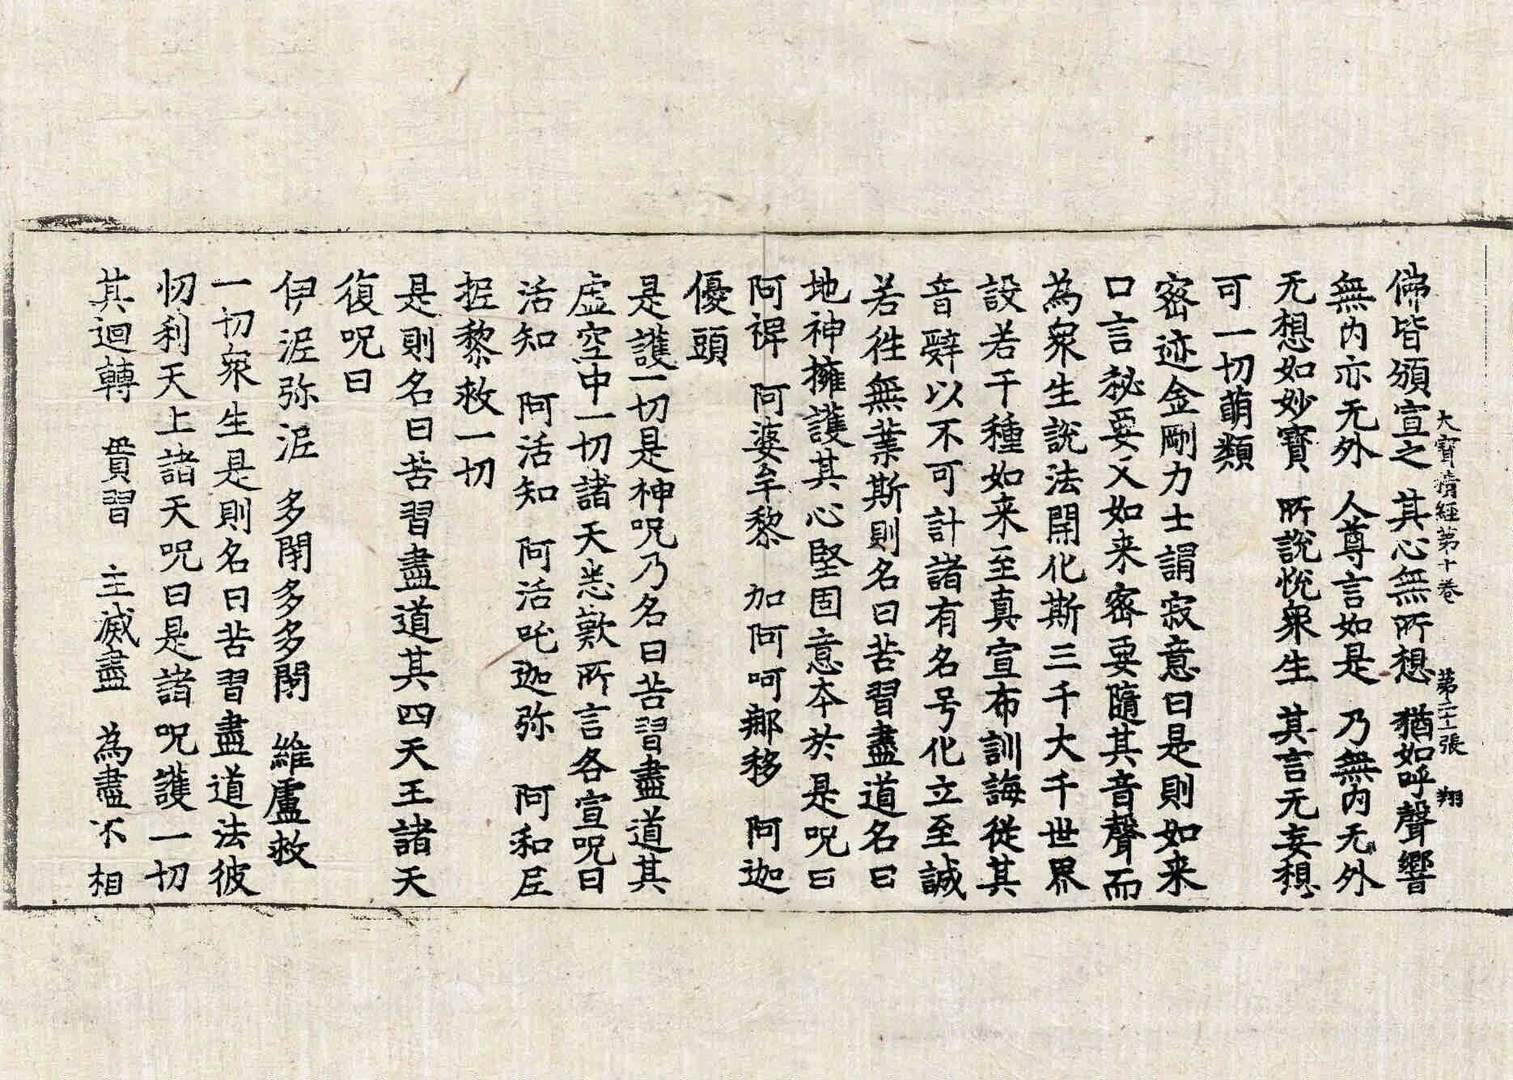 大寶積經第十卷　第二十張　翔
佛皆頒宣之　其心無所想　猶如呼聲響
無內亦无外　人尊言如是　乃無內无外
无想如妙寶　所說悅衆生　其言无妄想
可一切萌類
密迹金剛力士謂寂意曰是則如来
口言秘要又如来密要隨其音聲而
為衆生說法開化斯三千大千世界
設若干種如来至真宣布訓誨從其
音辭以不可計諸有名号化立至誠
若徃無業斯則名曰苦習盡道名曰
地神擁護其心堅固意夲於是呪曰
阿禆　阿婆牟黎　加阿呵鄒移　阿迦
優頭
是護一切是神呪乃名曰苦習盡道其
虛空中一切諸天悉歎所言各宣呪曰
活知　阿活知　阿活吒迦弥　阿和𡰱
抳黎救一切
是則名曰苦習盡道其四天王諸天
復呪曰
伊泥弥泥　多閇多多閇　維盧救
一切衆生是則名曰苦習盡道法彼
忉利天上諸天呪曰是諸呪護一切
其迴轉　貫習　主滅盡　為盡不相